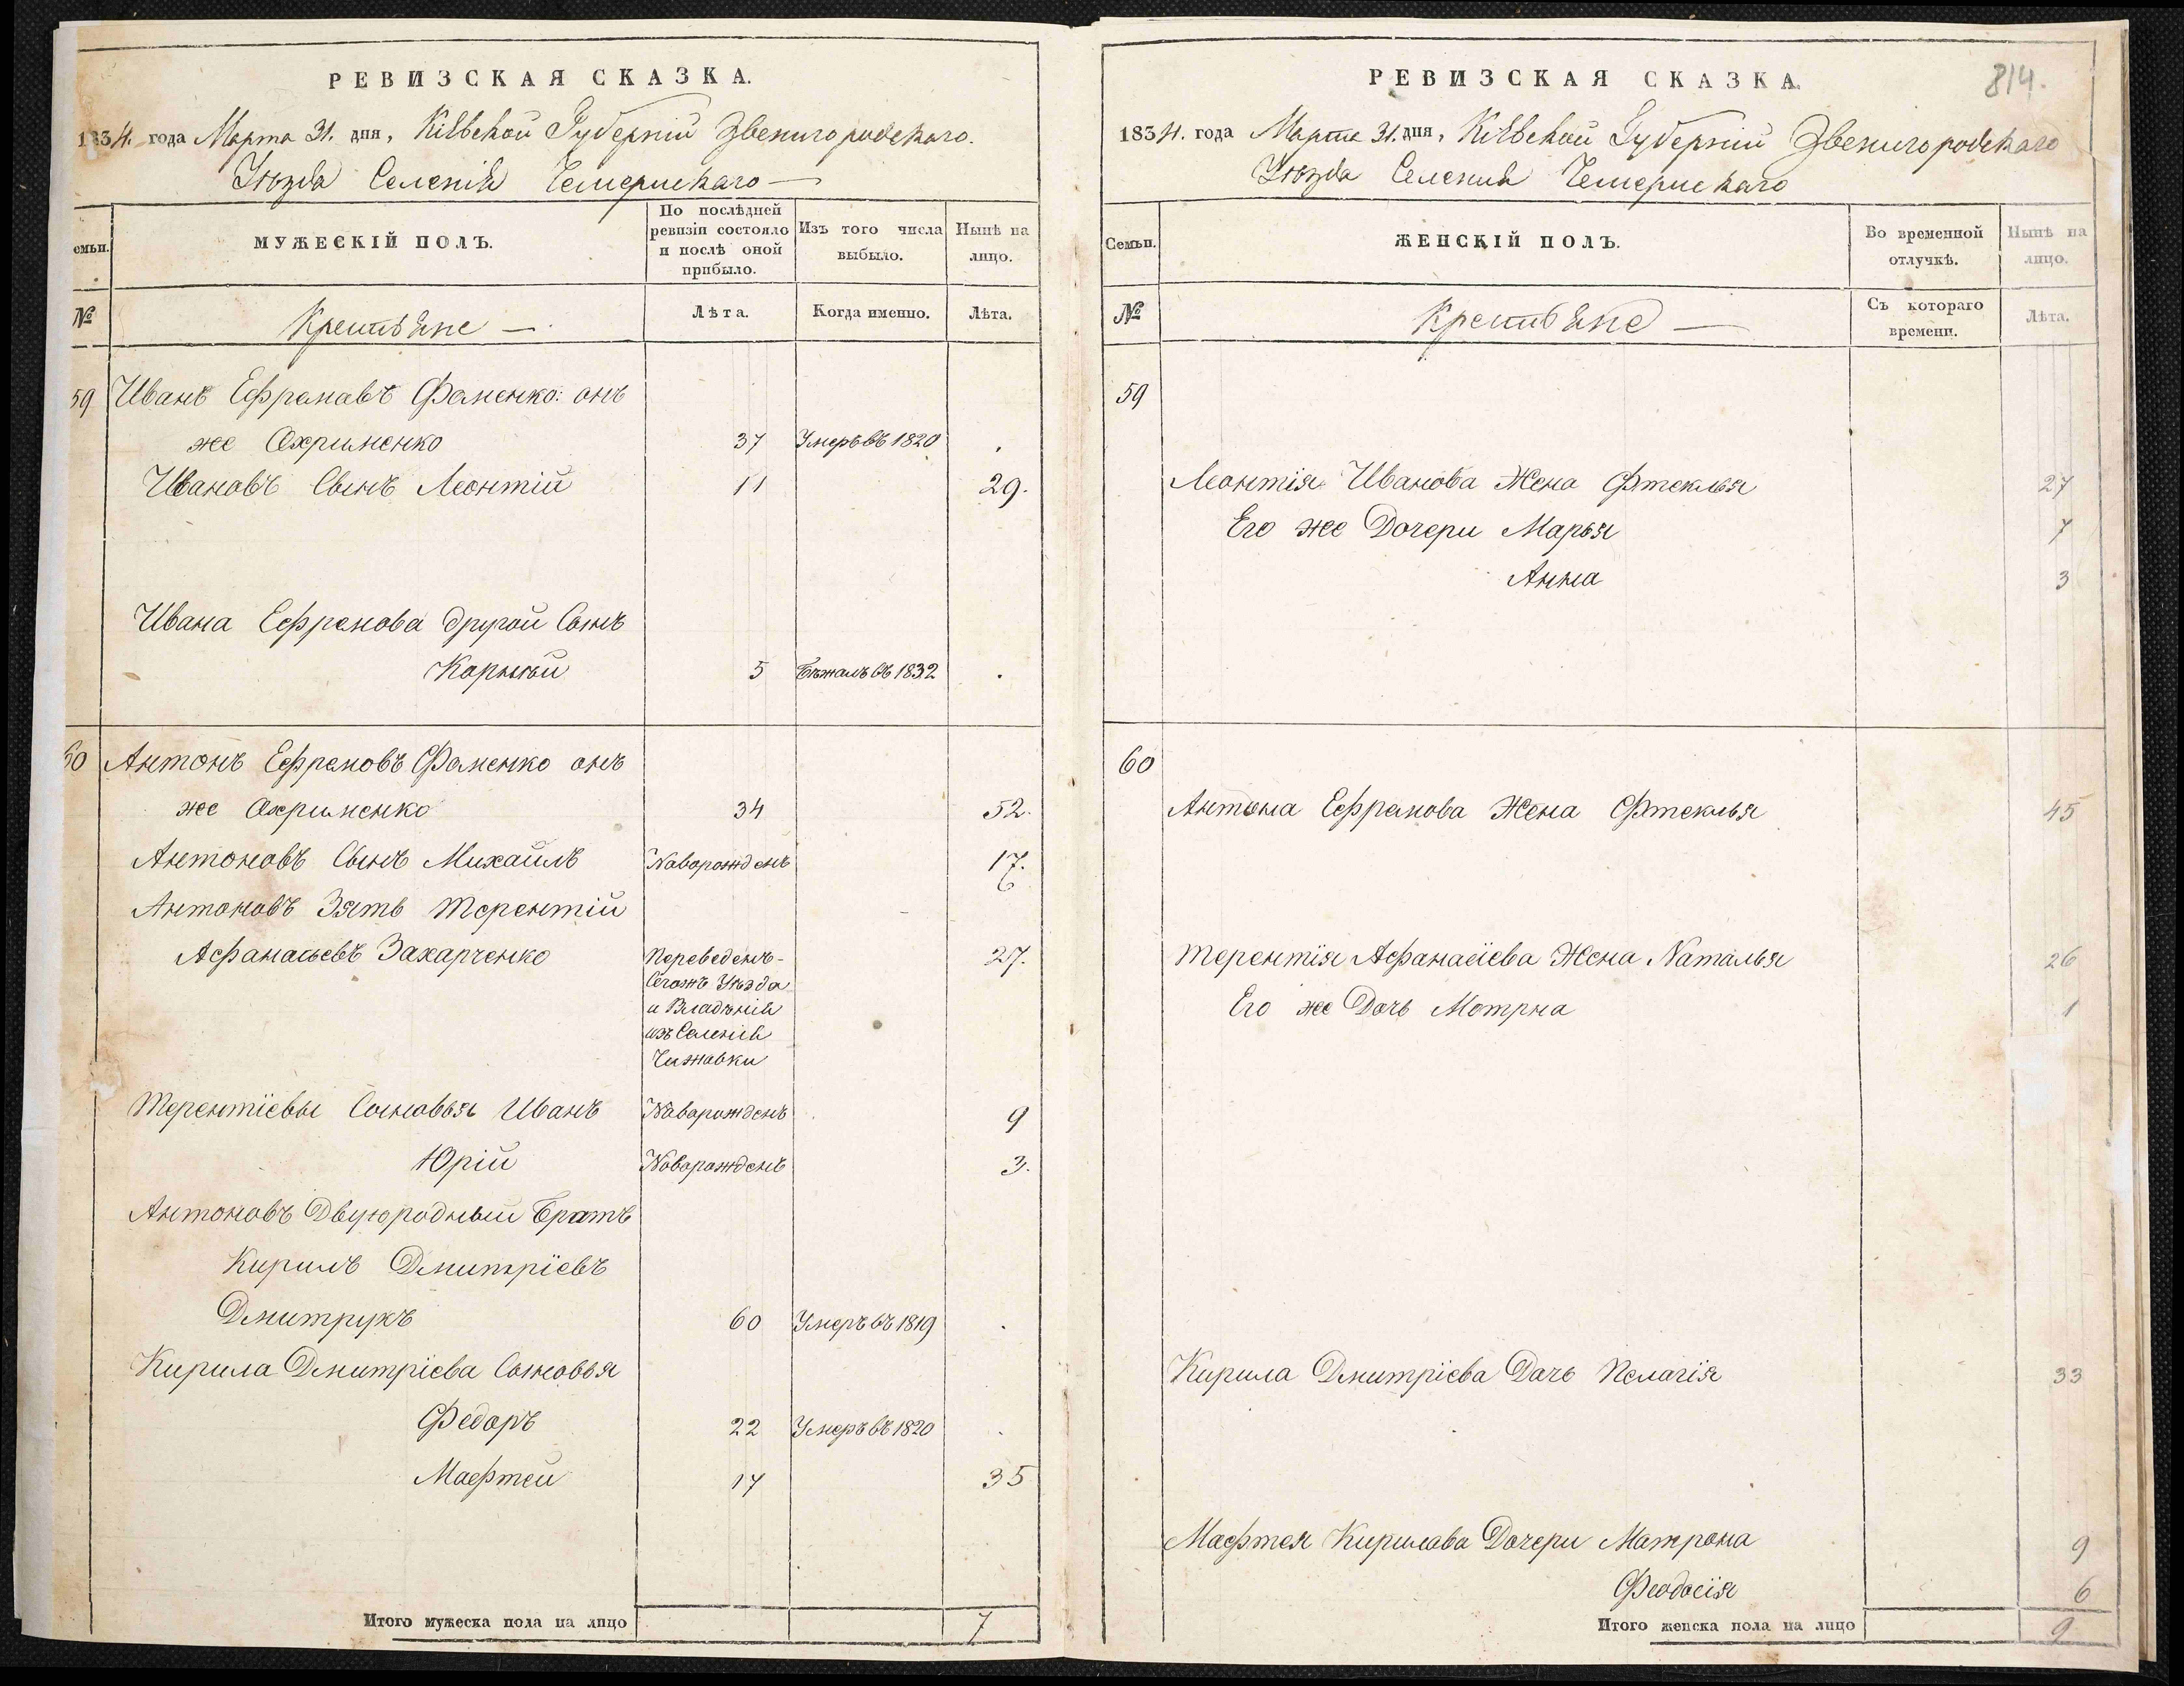 РЕВИЗСКАЯ СКАЗКА.
1834. года Марта 31. дня, Кіевской Губерніи Звенигородскаго.
Уѣзда Селенія Чемерискаго —
емьи.
МУЖЕСКІЙ ПОЛЪ.
По послѣдней ревизіи состояло и послѣ оной прибыло.
Изъ того числа выбыло.
Нынѣ на лицо.
№
Крестьяне —
Лѣта.
Когда именно.
Лѣта.
59 Иванъ Ефрамавъ Фаменко: онъ
же Охрименко 37 Умеръ въ 1820 .
Ивановъ Сынъ Леонтій 11 29.
Ивана Ефремова другой Сынъ
Карнѣй 5 Бѣжалъ въ 1832 .
60 Антонъ Ефремовъ Фаменко онъ
же Охрименко 34 52.
Антоновъ Сынъ Михаилъ Наворожденъ 17.
Антоновъ Зять Терентій
Афанасьевъ Захарченко Переведенъ- 27.
Сегожъ Уѣзда
и Владѣнія
изъ Селенія
Чижовки
Терентіевы Сыновья Иванъ Наварожденъ 9
Юрій Новорожденъ 3.
Антоновъ Двуюродный Братъ
Кирилъ Дмитріевъ
Дмитрукъ 60 Умеръ въ 1819 .
Кирила Дмитріева Сыновья
Федоръ 22 Умеръ въ 1820 .
Мафтей 17 35
Итого мужеска пола на лицо 7
814.
РЕВИЗСКАЯ СКАЗКА.
1834. года Марта 31. дня, Кіевской Губерніи Звенигородскаго
Уѣзда Селенія Чемерискаго
Семьи.
ЖЕНСКІЙ ПОЛЪ.
Во временной отлучкѣ.
Нынѣ на лицо.
№
Крестьяне —
Съ котораго времени.
Лѣта.
59
Леонтія Иванова Жена Фтеклья 27
Его же Дочери Марья 7
Анна 3
60
Антона Ефремова Жена Фтеклья 45
Терентія Афанасіева Жена Наталья 26
Его же Дочь Мотрна 1
Кирила Дмитріева Дачь Пелагія 33
Мафтея Кирилава Дочери Матрона 9
Феодосія 6
Итого женска пола на лицо 9